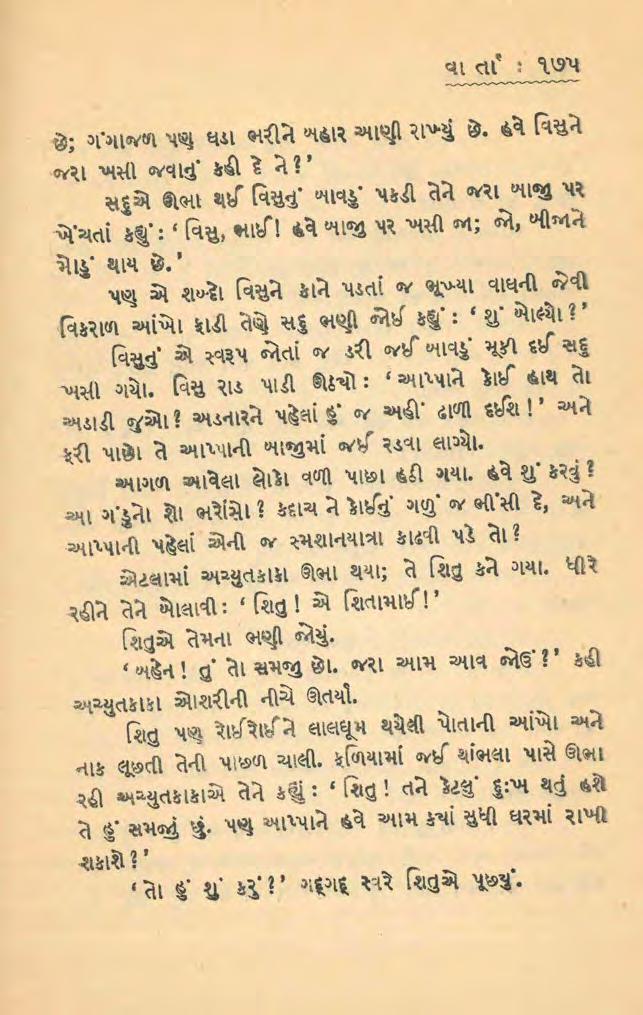 વાર્તા : ૧૭૫
છે; ગંગાજળ પણ ઘડા ભરીને બહાર આણી રાખ્યું છે. હવે વિસુને
જરા ખસી જવાનું કહી દે ને ?’
સદુએ ઊભા થઈ વિસુનું બાવડું પકડી તેને જરા બાજુ પર
ખેંચતાં કહ્યું : ‘ વિસુ, ભાઈ ! હવે બાજુ પર ખસી જા; જો, બીજાને
મોડું થાય છે.’
પણ એ શબ્દો વિસુને કાને પડતાં જ ભૂખ્યા વાઘની જેવી
વિકરાળ આંખો ફાડી તેણે સદુ ભણી જોઈ કહ્યું : ‘ શું બોલ્યો ?’
વિસુનું એ સ્વરૂપ જોતાં જ ડરી જઈ બાવડું મૂકી દઈ સદુ
ખસી ગયો. વિસુ રાડ પાડી ઊઠ્યો : ‘ આપ્પાને કોઈ હાથ તો
અડાડી જુઓ ! અડનારને પહેલાં હું જ અહીં ઢાળી દઈશ !’ અને
ફરી પાછો તે આપ્પાની બાજુમાં જઈ રડવા લાગ્યો.
આગળ આવેલા લોકો વળી પાછા હઠી ગયા. હવે શું કરવું ?
આ ગંડુનો શો ભરોંસો ? કદાચ ને કોઈનું ગળું જ ભીંસી દે, અને
આપ્પાની પહેલાં એની જ સ્મશાનયાત્રા કાઢવી પડે તો ?
એટલામાં અચ્યુતકાકા ઊભા થયા; તે શિતુ કને ગયા. ધીરે
રહીને તેને બોલાવી : ‘ શિતુ ! એ શિતામાઈ !’
શિતુએ તેમના ભણી જોયું.
‘ બહેન ! તું તો સમજુ છો. જરા આમ આવ જોઉં ?’ કહી
અચ્યુતકાકા ઓશરીની નીચે ઊતર્યા.
શિતુ પણ રોઈરોઈને લાલઘૂમ થયેલી પોતાની આંખો અને
નાક લૂછતી તેની પાછળ ચાલી. ફળિયામાં જઈ થાંભલા પાસે ઊભા
રહી અચ્યુતકાકાએ તેને કહ્યું : ‘ શિતુ ! તને કેટલું દુઃખ થતું હશે
તે હું સમજું છું. પણ આપ્પાને હવે આમ ક્યાં સુધી ઘરમાં રાખી
શકાશે ?’
‘ તો હું શું કરું ?’ ગદ્ગદ્ સ્વરે શિતુએ પૂછ્યું.